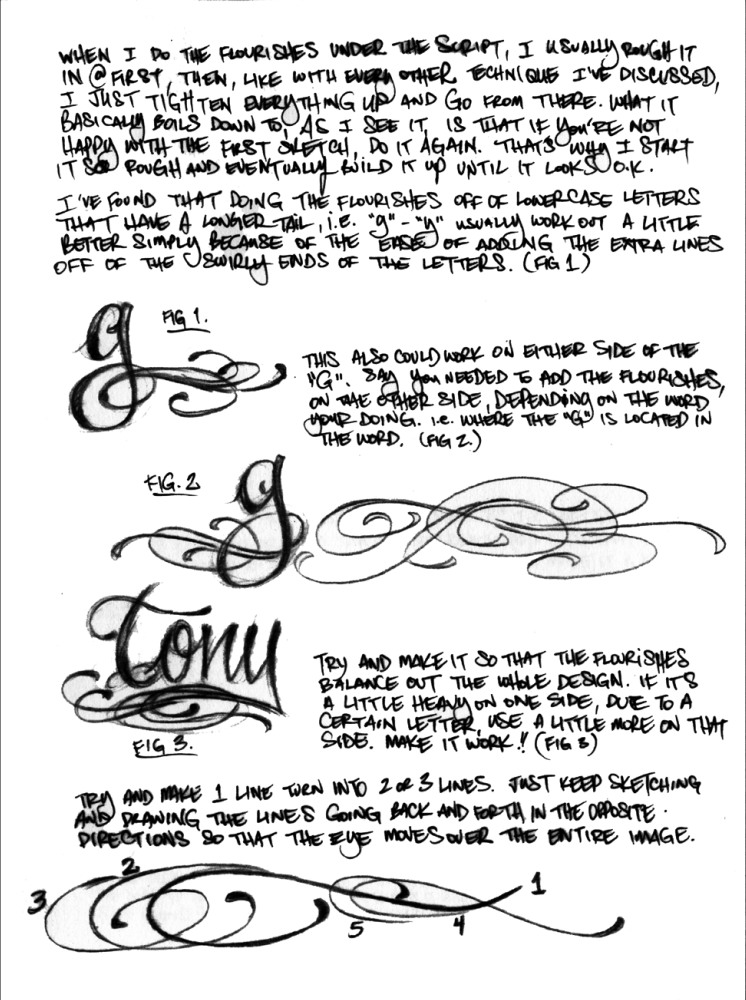 WHEN I DO THE FLOURISHES UNDER THE SCRIPT, I USUALLY ROUGH IT
IN @ FIRST, THEN, LIKE WITH EVERY OTHER TECHNIQUE I'VE DISCUSSED,
I JUST TIGHTEN EVERYTHING UP AND GO FROM THERE. WHAT IT
BASICALLY BOILS DOWN TO, AS I SEE IT, IS THAT IF YOU'RE NOT
HAPPY WITH THE FIRST SKETCH, DO IT AGAIN. THATS WHY I START
IT SO ROUGH AND EVENTUALLY BUILD IT UP UNTIL IT LOOKS O.K.
I'VE FOUND THAT DOING THE FLOURISHES OFF OF LOWERCASE LETTERS
THAT HAVE A LONGER TAIL, i.E. "g" - "y" USUALLY WORK OUT A LITTLE
BETTER SIMPLY BECAUSE OF THE EASE OF ADDING THE EXTRA LINES
OFF OF THE SWIRLY ENDS OF THE LETTERS. (FIG 1)
g
FIG 1.
THIS ALSO COULD WORK ON EITHER SIDE OF THE
"G". SAY YOU NEEDED TO ADD THE FLOURISHES,
ON THE OTHER SIDE, DEPENDING ON THE WORD
YOUR DOING. i.e. WHERE THE "G" IS LOCATED IN
THE WORD. (FIG 2.)
FIG. 2
g
Tony
FIG 3.
TRY AND MAKE IT SO THAT THE FLOURISHES
BALANCE OUT THE WHOLE DESIGN. IF IT'S
A LITTLE HEAVY ON ONE SIDE, DUE TO A
CERTAIN LETTER, USE A LITTLE MORE ON THAT
SIDE. MAKE IT WORK!! (FIG 3)
TRY AND MAKE 1 LINE TURN INTO 2 OR 3 LINES. JUST KEEP SKETCHING
AND DRAWING THE LINES GOING BACK AND FORTH IN THE OPPOSITE
DIRECTIONS SO THAT THE EYE MOVES OVER THE ENTIRE IMAGE.
2
1
3
5
4